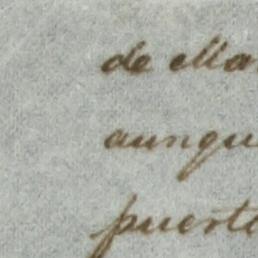 de Ma
aunque
puerto